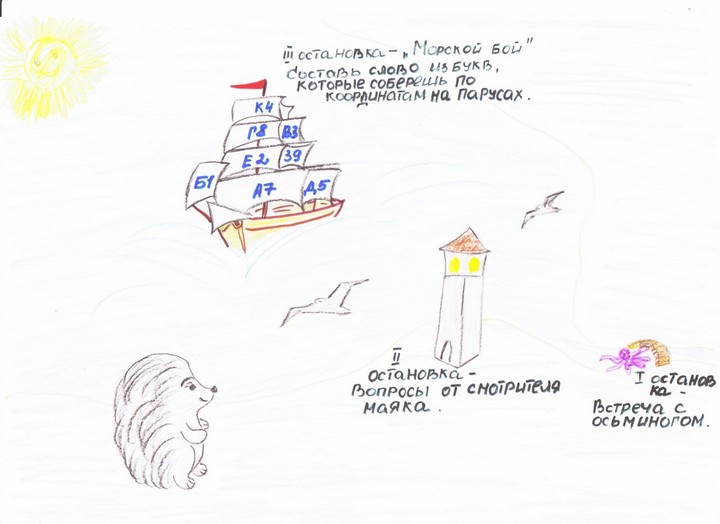 III остановка - „Морской бой"
Составь слово из букв,
которые соберешь по
координатам на парусах.
К4
Г8 В3
Е2 З9
Б1 А7 Д5
II
остановка -
Вопросы от смотрителя
маяка.
I останов
ка -
Встреча с
осьминогом.